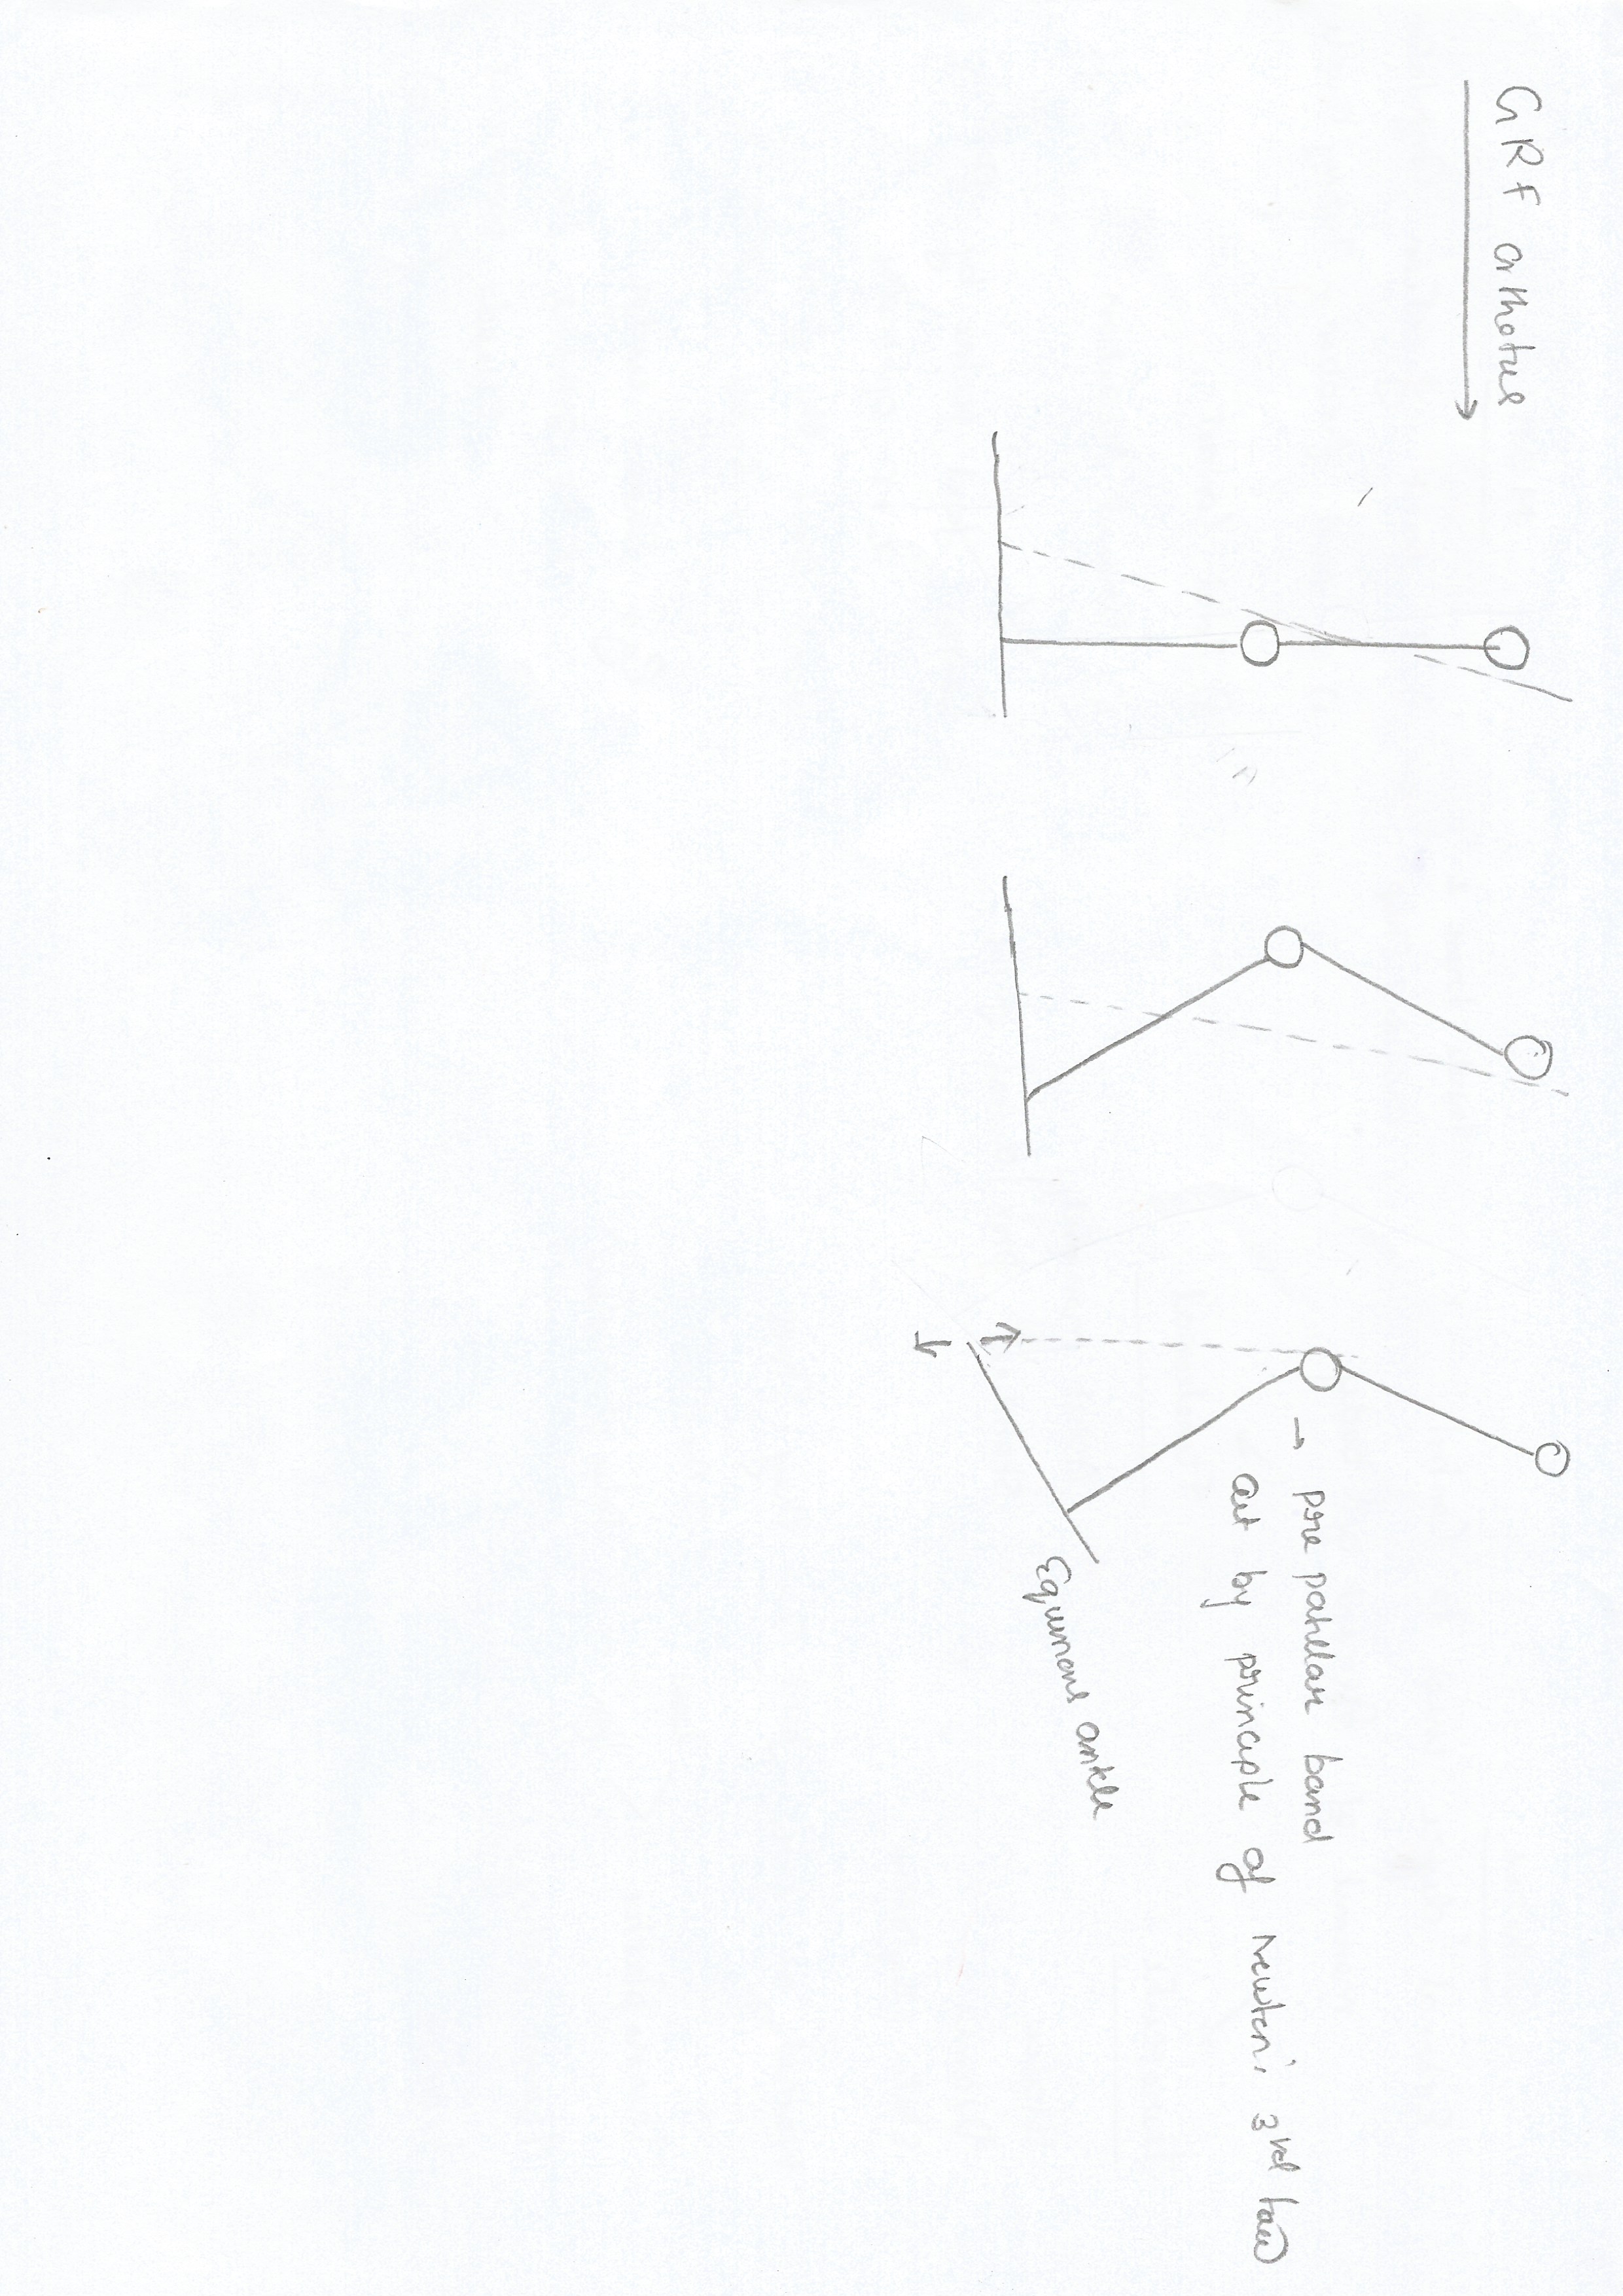 GRF orthotus
→ pre patellar band
act by principle of Newton's 3rd law
Equinous ankle